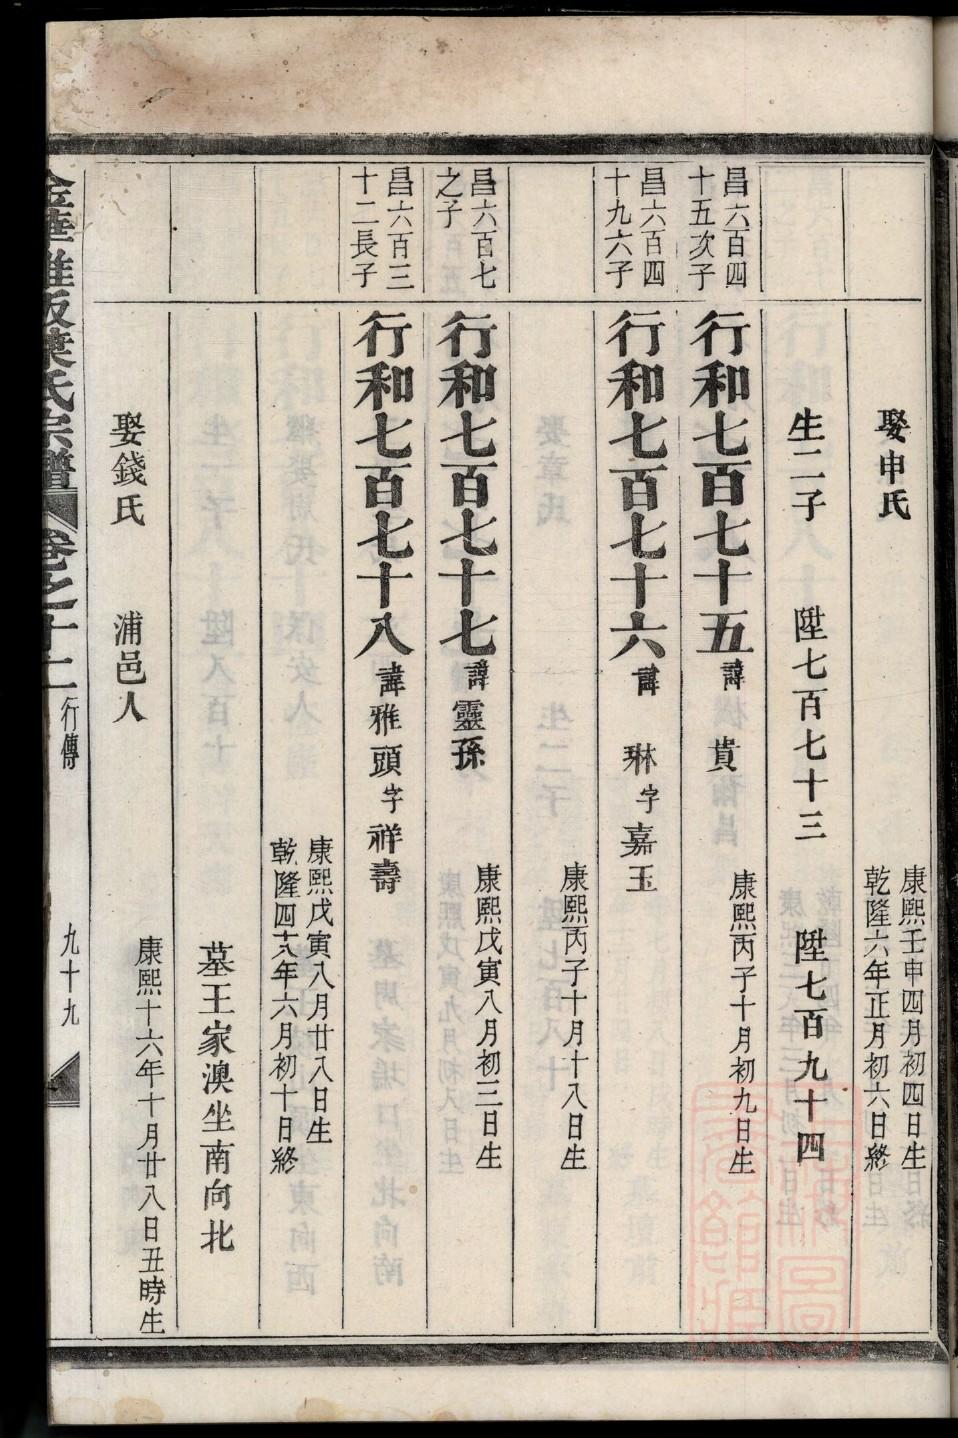 娶申氏
康熙壬申四月初四日生
乾隆六年正月初六日終
生二子 陞七百七十三 陞七百九十四
昌六百四
十五次子
行和七百七十五 諱 貴
康熙丙子十月初九日生
昌六百四
十九六子
行和七百七十六 諱 琳 字嘉玉
康熙丙子十月十八日生
昌六百七
之子
行和七百七十七 諱靈孫
康熙戊寅八月初三日生
昌六百三
十二長子
行和七百七十八 諱雅頭 字祥壽
康熙戊寅八月廿八日生
乾隆四十八年六月初十日終
墓王家澳坐南向北
娶錢氏 浦邑人
康熙十六年十月廿八日丑時生
葉氏宗譜 卷之十二 行傳 九十九